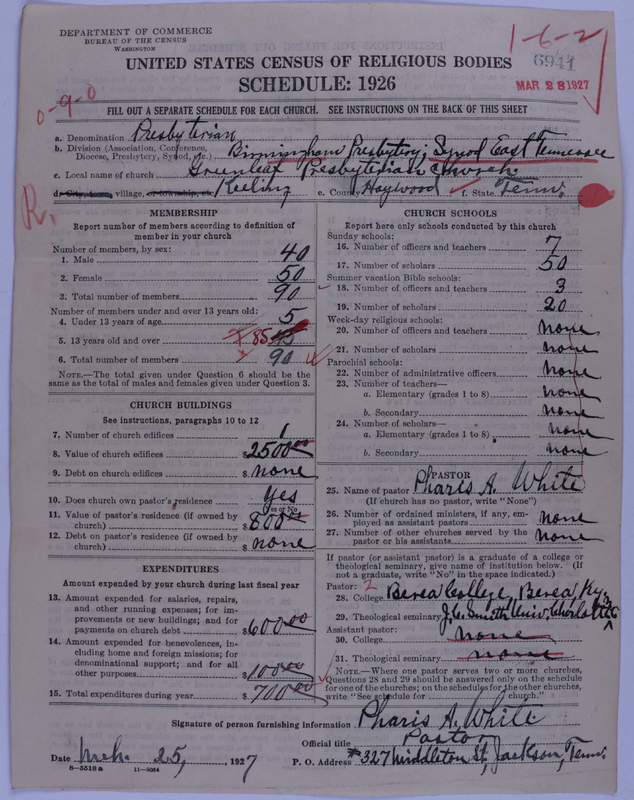 DEPARTMENT OF COMMERCE
BUREAU OF THE CENSUS
WASHINGTON
1-6-2
6941
UNITED STATES CENSUS OF RELIGIOUS BODIES
MAR 28 1927
SCHEDULE: 1926
0-9-0
FILL OUT A SEPARATE SCHEDULE FOR EACH CHURCH. SEE INSTRUCTIONS ON THE BACK OF THIS SHEET
a. Denomination Presbyterian
b. Division (Association, Conference, Diocese, Presbytery, Synod, etc.) Birmingham Presbytery; Synod East Tennessee
c. Local name of church Greenleaf Presbyterian Church.
d. City, town, village, or township, etc. Keeling e. County Haywood f. State Tenn.
R.
MEMBERSHIP
Report number of members according to definition of
member in your church
Number of members, by sex:
1. Male 40
2. Female 50
3. Total number of members 90
Number of members under and over 13 years old:
4. Under 13 years of age 5
5. 13 years old and over 85
6. Total number of members 90
NOTE.—The total given under Question 6 should be
same as the total of males and females given under Question 3.
CHURCH BUILDINGS
See instructions, paragraphs 10 to 12
7. Number of church edifices 1
8. Value of church edifices $2500.00
9. Debt on church edifices $ none
10. Does church own pastor's residence Yes
Yes or No
11. Value of pastor's residence (if owned by
church) $800.00
12. Debt on pastor's residence (if owned by
church) $ none
EXPENDITURES
Amount expended by your church during last fiscal year
13. Amount expended for salaries, repairs,
and other running expenses; for im-
provements or new buildings; and for
payments on church debt $600.00
14. Amount expended for benevolences, in-
cluding home and foreign missions; for
denominational support; and for all
other purposes $100.00
15. Total expenditures during year $700.00
CHURCH SCHOOLS
Report here only schools conducted by this church
Sunday schools:
16. Number of officers and teachers 7
17. Number of scholars 50
Summer vacation Bible schools:
18. Number of officers and teachers 3
19. Number of scholars 20
Week-day religious schools:
20. Number of officers and teachers none
21. Number of scholars none
Parochial schools:
22. Number of administrative officers none
23. Number of teachers—
a. Elementary (grades 1 to 8) none
b. Secondary none
24. Number of scholars—
a. Elementary (grades 1 to 8) none
b. Secondary none
PASTOR
25. Name of pastor Pharis A. White
(If church has no pastor, write "None")
26. Number of ordained ministers, if any, em-
ployed as assistant pastors none
27. Number of other churches served by the
pastor or his assistants none
If pastor (or assistant pastor) is a graduate of a college or
theological seminary, give name of institution below. (If
not a graduate, write "No" in the space indicated.)
Pastor: 2
28. College Berea College, Berea, Ky.
29. Theological seminary J.C. Smith Univ. Charlotte
Assistant pastor:
30. College none
31. Theological seminary none
NOTE.—Where one pastor serves two or more churches,
Questions 28 and 29 should be answered only on the schedule
for one of the churches; on the schedules for the other churches,
write "See schedule for church."
Signature of person furnishing information Pharis A. White
Official title Pastor
Date Mch. 25, 1927 P. O. Address #327 Middleton St., Jackson, Tenn.
8—5518a 11—9034